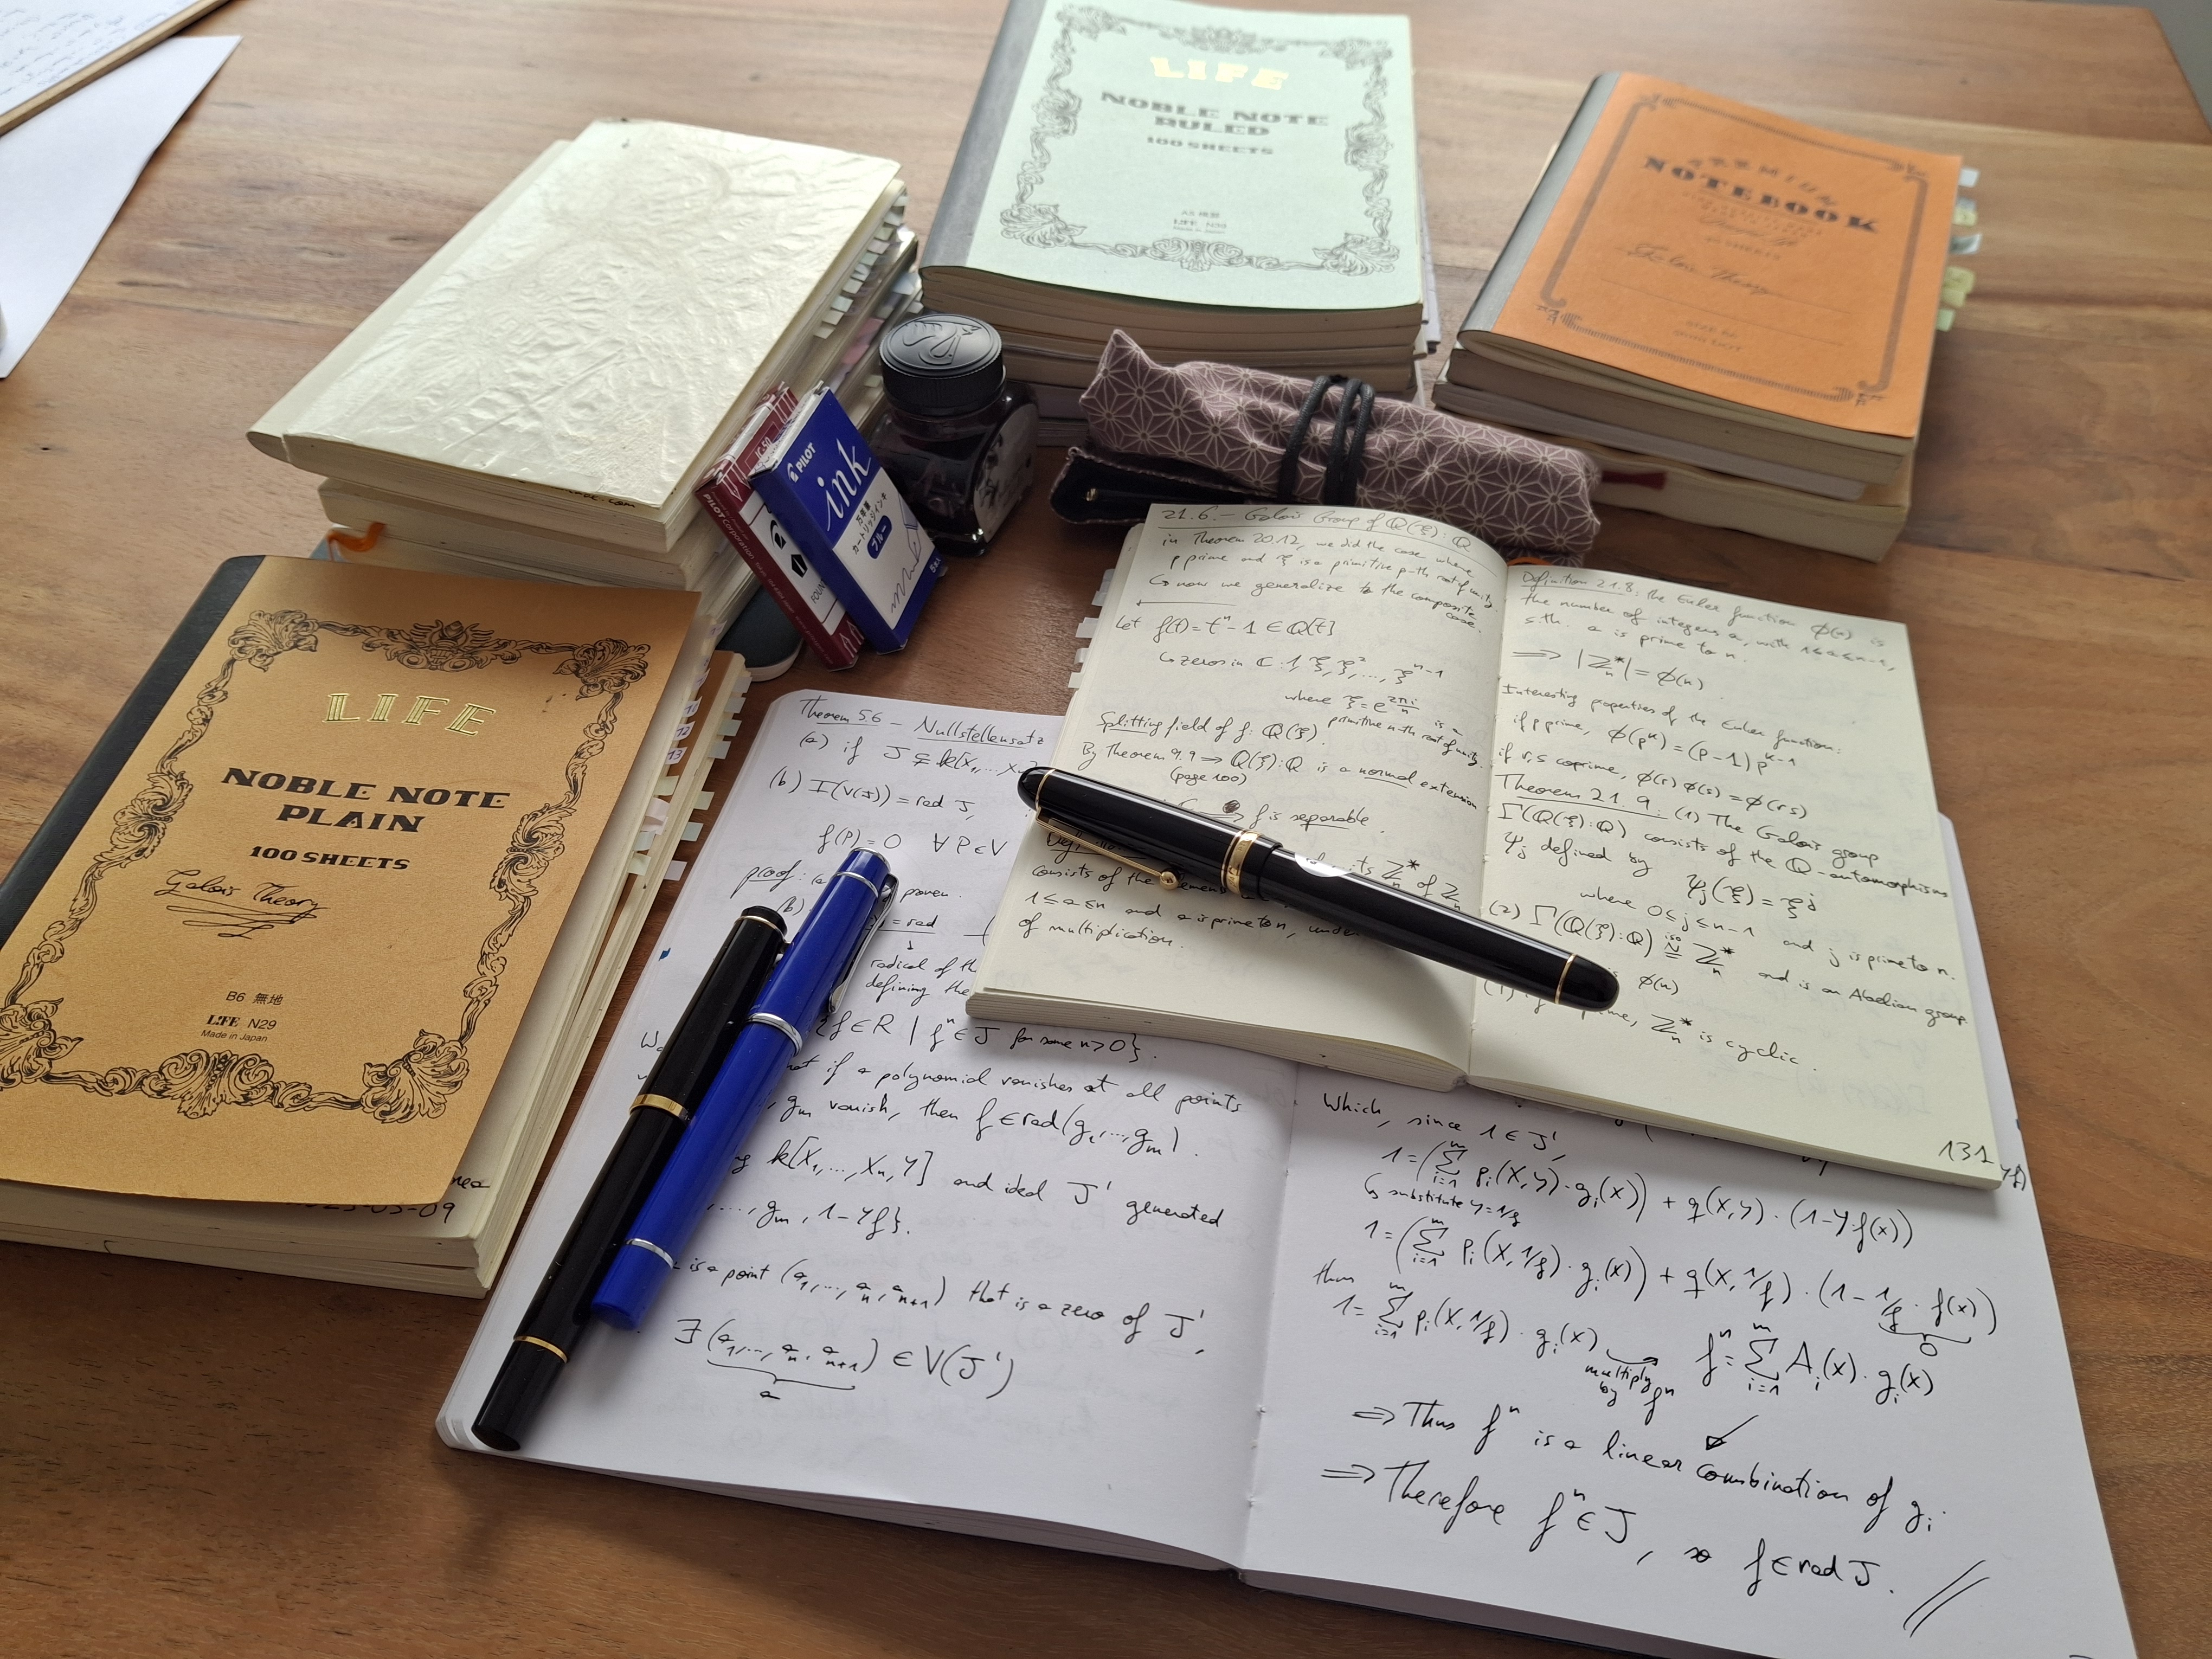 LIFE
NOBLE NOTE
RULED
100 SHEETS
A5 横罫
LIFE N33
Made in Japan
NOTEBOOK
Galois Theory
PILOT
ink
万年筆
カートリッジインキ
ブルー
PILOT Corporation
LIFE
NOBLE NOTE
PLAIN
100 SHEETS
Galois Theory
B6 無地
LIFE N29
Made in Japan
05-09
10
12
13
21.6.- Galois Group of Q(ξ):Q
in Theorem 20.12, we did the case where
p prime and ξ is a primitive p-th root of unity.
↳ now we generalize to the composite
case.
Let f(t)=tⁿ-1 ∈ Q[t]
↳ zeros in C: 1, ξ, ξ²,..., ξⁿ⁻¹
where ξ = e^(2πi/n) is a
primitive n-th root of unity.
Splitting field of f: Q(ξ).
By Theorem 9.9 → Q(ξ):Q is a normal extension
(page 100)
f is separable.
units Z*ₙ of Zₙ
consists of the elements
1≤a≤n and a is prime to n, under
of multiplication.
Definition 21.8: the Euler function φ(n) is
the number of integers a, with 1≤a≤n-1,
s.th. a is prime to n.
⟹ |Z*ₙ| = φ(n)
Interesting properties of the Euler function:
if p prime, φ(pᵏ) = (p-1)pᵏ⁻¹
if r,s coprime, φ(r)φ(s) = φ(rs)
Theorem 21.9.: (1) The Galois group
Γ(Q(ξ):Q) consists of the Q-automorphisms
ψⱼ defined by ψⱼ(ξ) = ξʲ
where 0≤j≤n-1 and j is prime to n.
(2) Γ(Q(ξ):Q) ≅ iso Z*ₙ and is an Abelian group
φ(n)
Z*ₙ is cyclic.
131
Theorem 5.6 - Nullstellensatz
(a) if J ⊊ k[X₁,...,Xₙ
(b) I(V(J)) = rad J,
f(P)=0 ∀ P∈V
proof: (a proven.
(b)
= rad
radical of th
defining the
{f∈R | fⁿ∈J for some n>0}.
if a polynomial vanishes at all points
gₘ vanish, then f∈rad(g₁,...,gₘ).
k[X₁,...,Xₙ,Y] and ideal J' generated
,...,gₘ, 1-Yf}.
is a point (a₁,...,aₙ,aₙ₊₁) that is a zero of J',
∃ (a₁,...,aₙ,aₙ₊₁) ∈ V(J')
a
Which, since 1∈J',
1 = (Σᵢ₌₁ᵐ pᵢ(X,Y)·gᵢ(X)) + q(X,Y)·(1-Y·f(X))
↳ substitute Y=1/f
1 = (Σᵢ₌₁ᵐ pᵢ(X,1/f)·gᵢ(X)) + q(X,1/f)·(1-1/f·f(X))
0
thus
1 = Σᵢ₌₁ᵐ pᵢ(X,1/f)·gᵢ(X) multiply by fⁿ fⁿ = Σᵢ₌₁ᵐ Aᵢ(X)·gᵢ(X)
⟹ Thus fⁿ is a linear combination of gᵢ.
⟹ Therefore fⁿ∈J, so f∈rad J. //